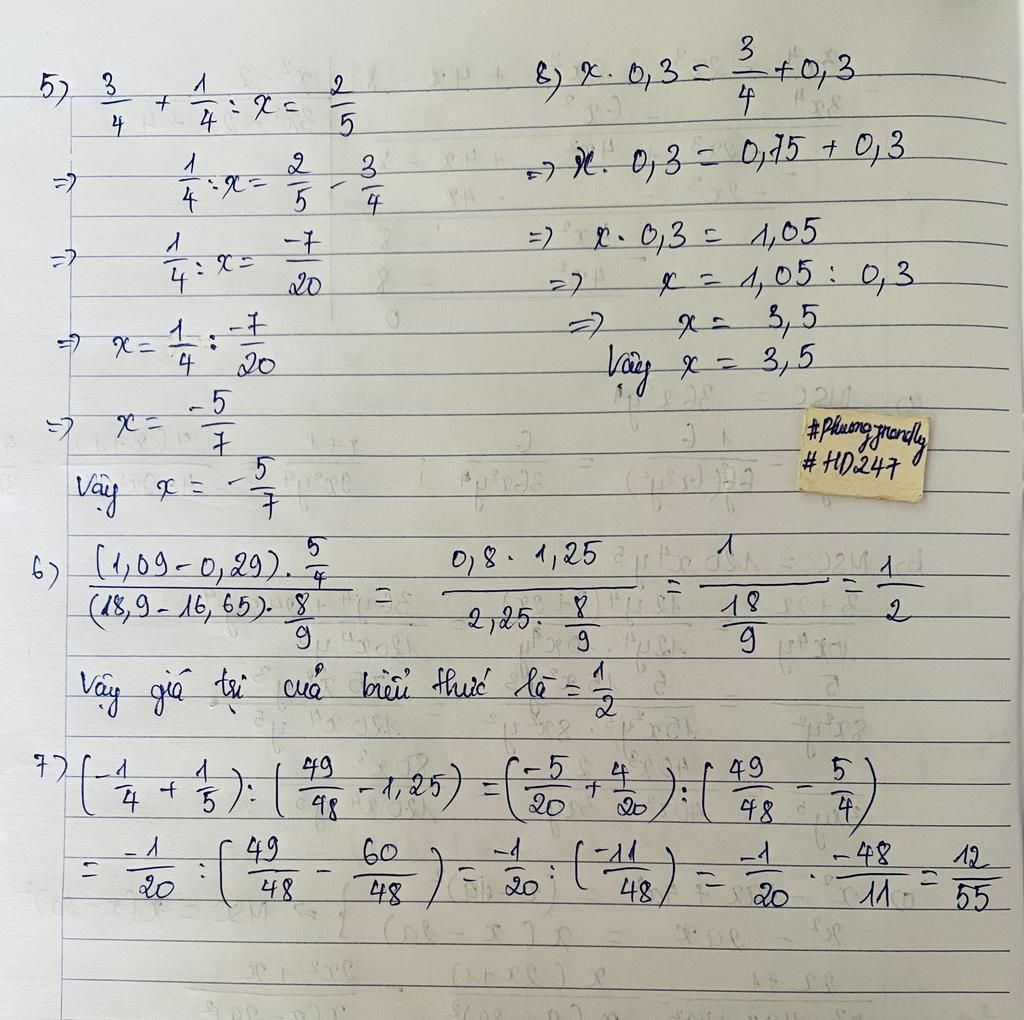 5) 3/4 + 1/4 : x = 2/5
=> 1/4 : x = 2/5 - 3/4
=> 1/4 : x = -7/20
=> x = 1/4 : -7/20
=> x = -5/7
Vậy x = -5/7
8) x . 0,3 = 3/4 + 0,3
=> x . 0,3 = 0,75 + 0,3
=> x . 0,3 = 1,05
=> x = 1,05 : 0,3
=> x = 3,5
Vậy x = 3,5
#HD247
6) (1,09 - 0,29) . 5/4 / (18,9 - 16,65) . 8/9 = 0,8 . 1,25 / 2,25 . 8/9 = 1 / 18/9 = 1/2
Vậy giá trị của biểu thức là = 1/2
7) (-1/4 + 1/5) : (49/48 - 1,25) = (-5/20 + 4/20) : (49/48 - 5/4)
= -1/20 : (49/48 - 60/48) = -1/20 : (-11/48) = -1/20 . -48/11 = 12/55